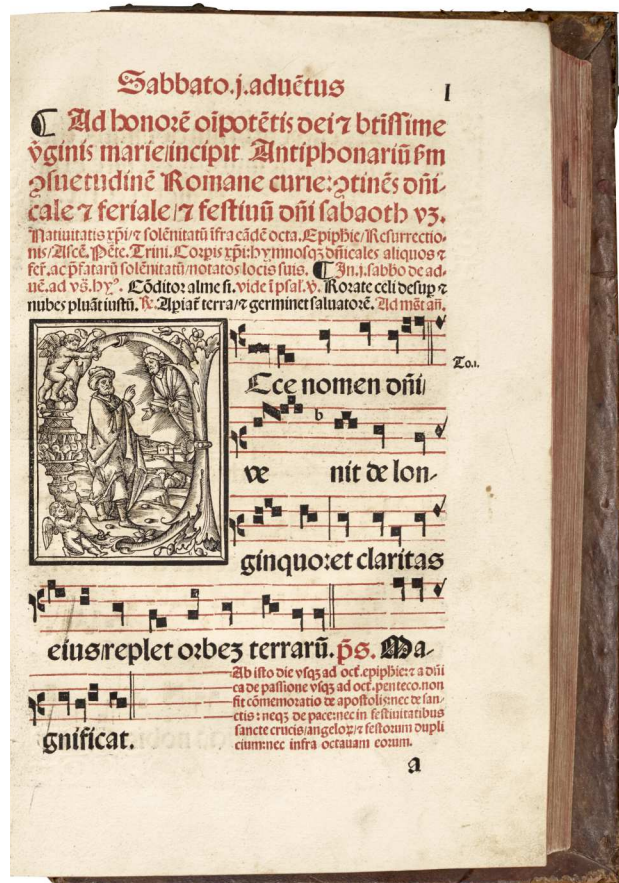 Sabbato.j.aduẽtus
I
¶ Ad honorẽ oĩpotẽtis dei ⁊ btĩssime
v̾ginis marie/incipit Antiphonariũ ẜm
ꝯsuetudinẽ Romane curie:ꝯtinẽs dñi-
cale ⁊ feriale/⁊ festiuũ dñi sabaoth vꝫ.
Natiuitatis xp̃i/⁊ solẽnitatũ ĩfra eãdẽ octa.Epiphie/Resurrectio-
nis/Ascẽ.Pẽte.Trini.Corpis xp̃i:hymnosqꝫ dñicales aliquos ⁊
fer̃.ac p̃fatarũ solẽnitatũ/notatos locis suis. ¶ In.j.sabbo de ad-
uẽ.ad vs̃.hyꝰ. Cõditor alme si.vide ĩ psal.v̾. Rorate celi desuꝑ ⁊
nubes pluãt iustũ. ℟. Aꝑiat̃ terra/⁊ germinet saluatorẽ. Ad mẽt añ.
To.1.
Ecce nomen dñi/
ve nit de lon-
ginquo:et claritas
eius/replet orbeꝫ terrarũ. p̃s. Ma-
gnificat.
Ab isto die vsqꝫ ad oct̃.epiphie:⁊ a dñi
ca de passione vsqꝫ ad oct̃.penteco.non
fit cõmemoratio de apostolis:nec de san-
ctis:neqꝫ de pace:nec in festiuitatibus
sancte crucis/angeloꝝ/⁊ festorum dupli
cium:nec infra octauam eorum.
a